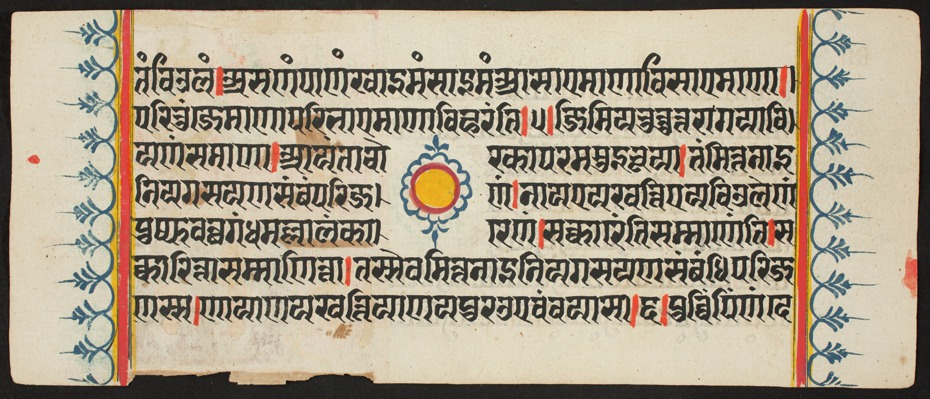 तंविउलं।असणंपाणंखाइमंसाइमंआसाएमाणाविसाएमाणा।
परिभुंजेमाणापरिभाएमाणाविहरंति।५।जिमियभुत्तुत्तरागयावि
यणंसमाणा।आयंताचोरकापरमसुइभूया।तंमित्तनाइ
नियगसयणसंबंधपरिजणं।नायएयखत्तिएयविउलेणं
पुप्फवत्थगंधमल्लालंकारेणं।सक्कारेंतिसम्माणेंति।स
क्कारित्तासम्माणित्ता।तस्सेवमित्तनाइनियगसयणसंबंधिपरिज
णस्स।णायाणयखत्तियाणयपुरउएवंवयासी।६।पुव्विंपिणंद